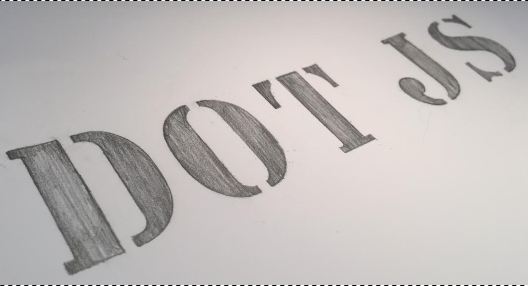 DOT JS